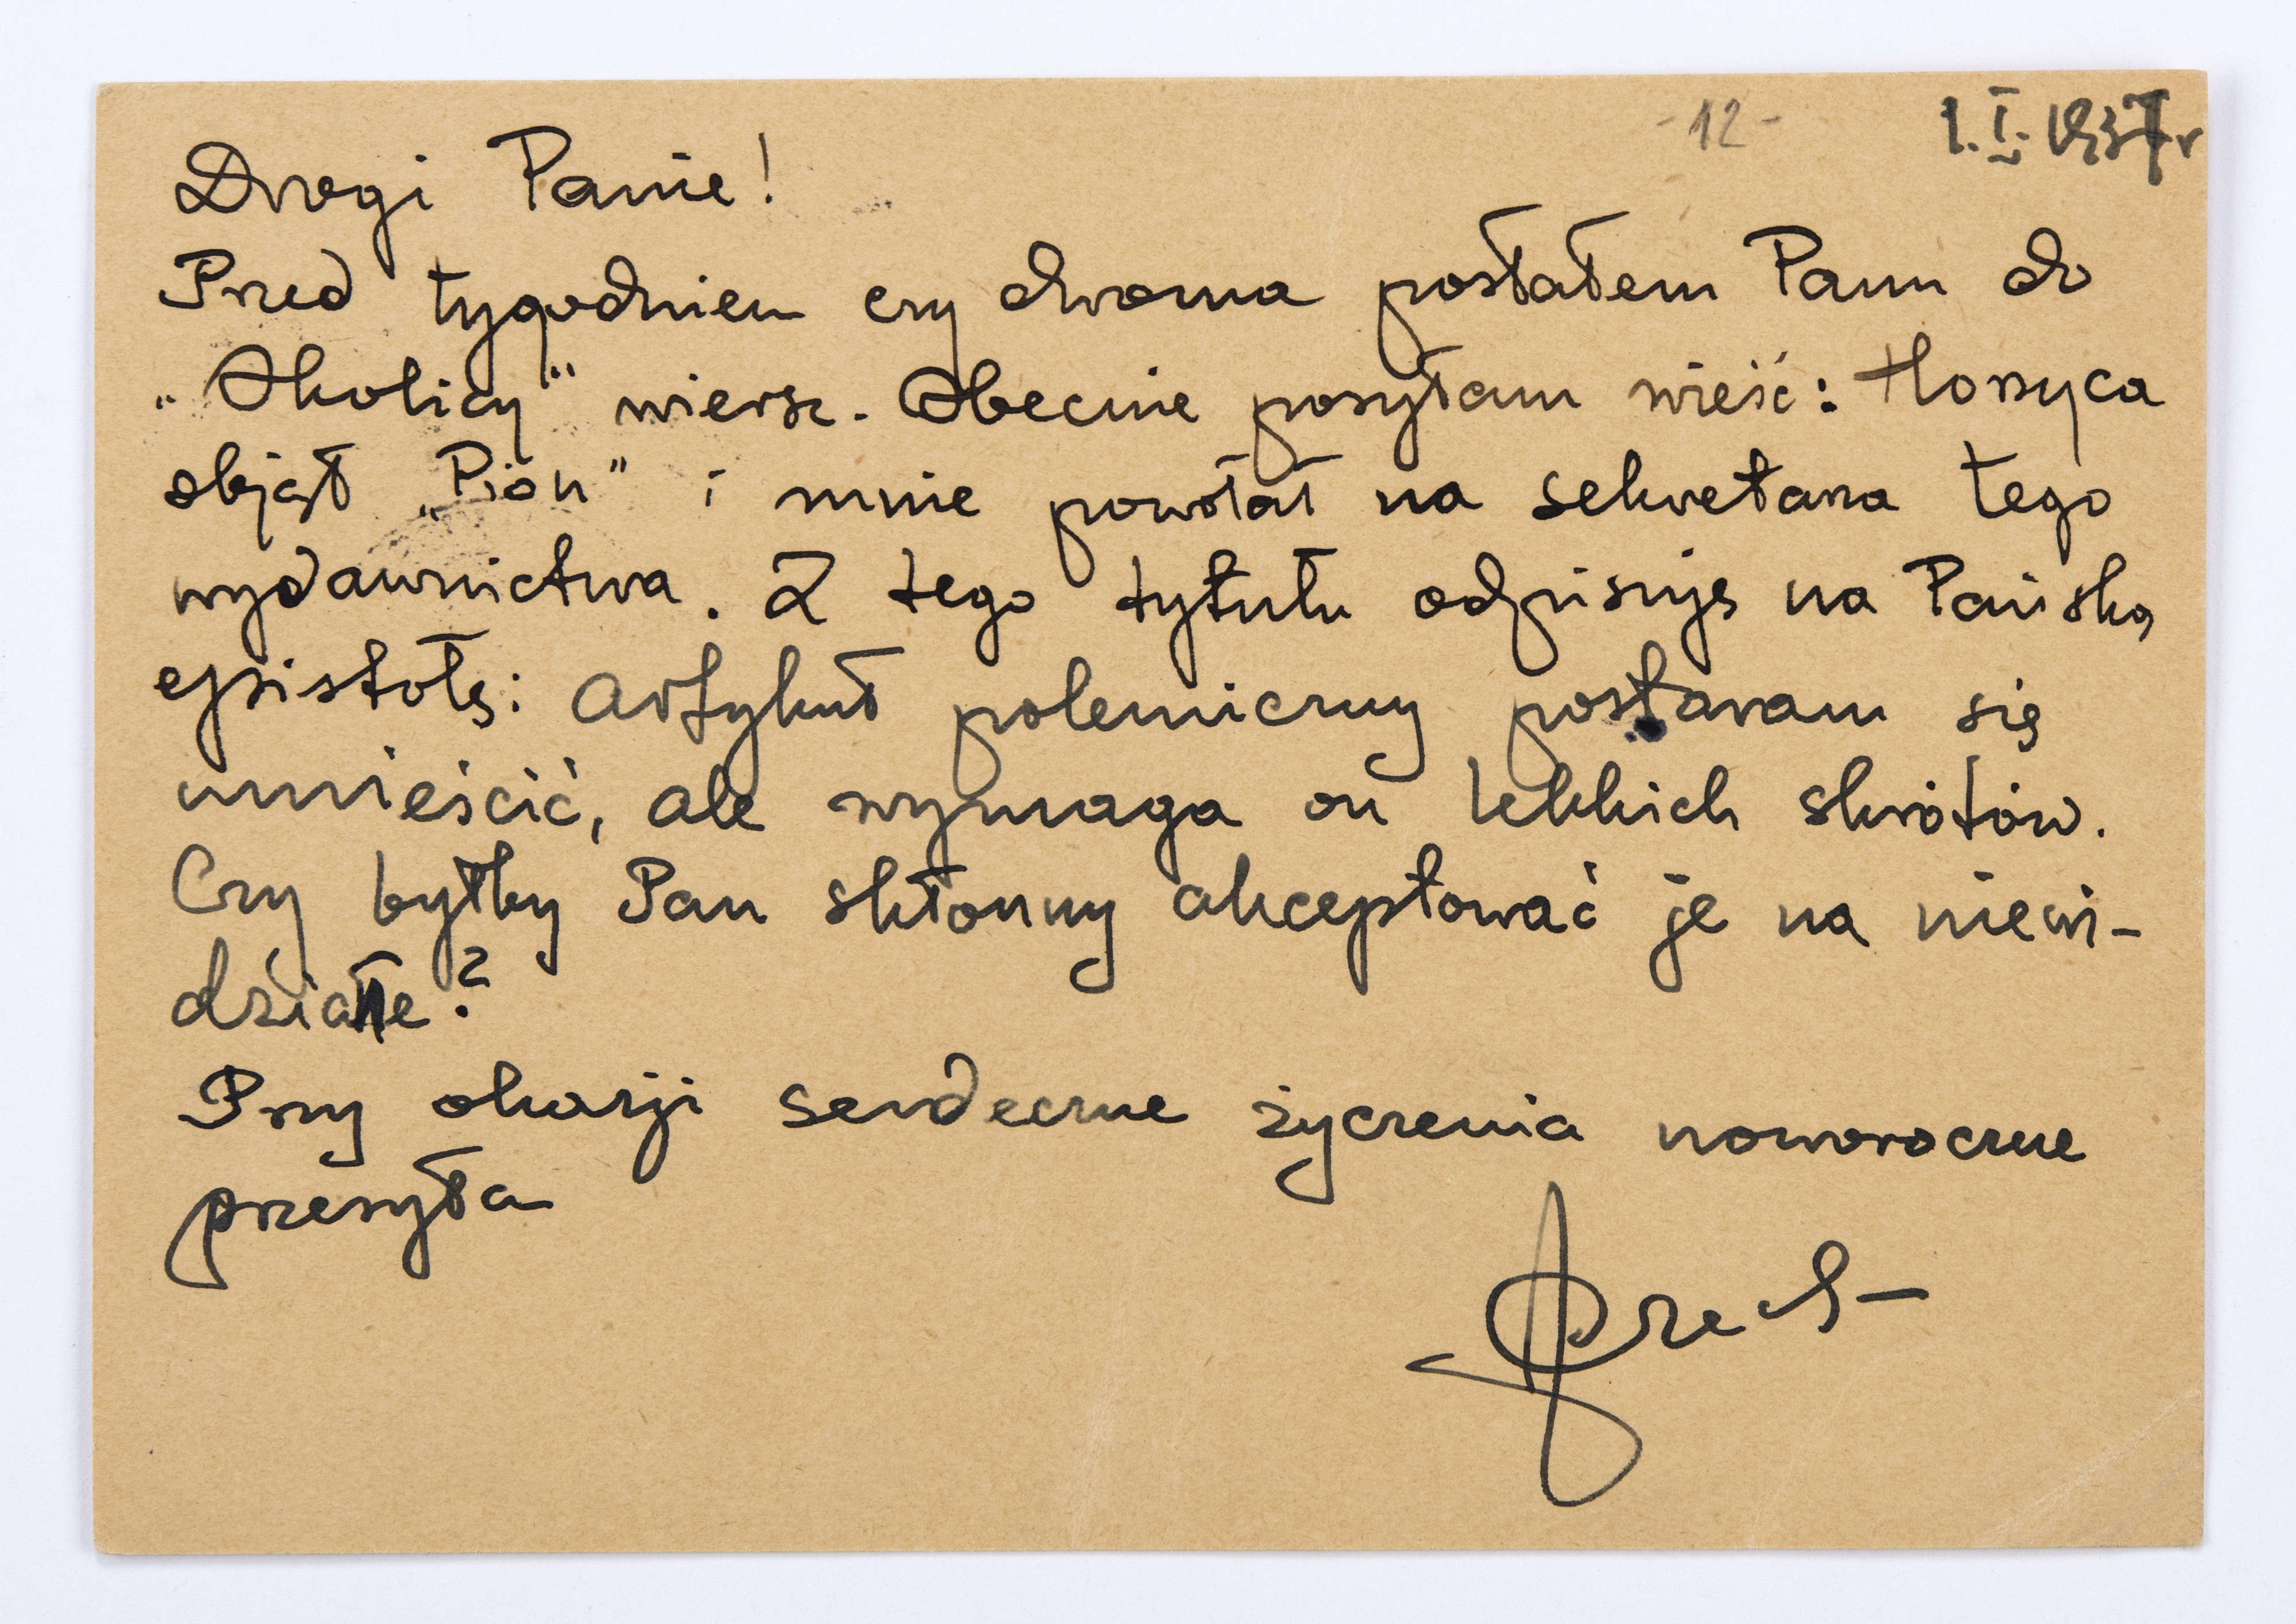 -12-
1.I.1937r
Drogi Panie!
Przed tygodniem czy dwoma posłałem Panu do
„Okolicy" wiersz. Obecnie posyłam wieść: Horzyca
objął „Pion" i mnie powołał na sekretarza tego
wydawnictwa. Z tego tytułu odpisuję na Pańską
epistołę: artykuł polemiczny postaram się
umieścić, ale wymaga on lekkich skrótów.
Czy byłby Pan skłonny akceptować je na niewi-
dziane?
Przy okazji serdeczne życzenia noworoczne
przesyła